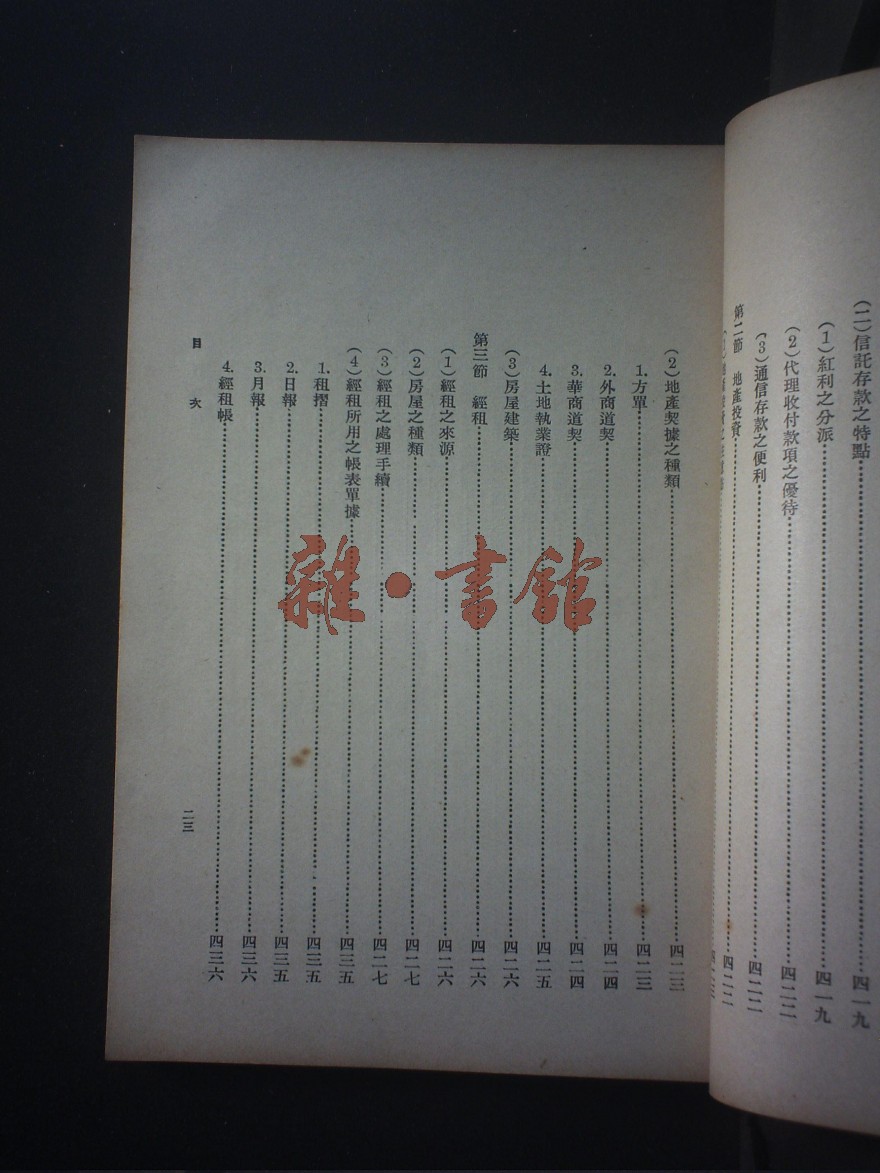 (二)信託存款之特點……四一九
(1)紅利之分派……四一九
(2)代理收付款項之優待……四二二
(3)通信存款之便利……四二二
第二節 地產投資……四二二
(2)地產契據之種類……四二三
1.方單……四二三
2.外商道契……四二四
3.華商道契……四二四
4.土地執業證……四二五
(3)房屋建築……四二六
第三節 經租……四二六
(1)經租之來源……四二六
(2)房屋之種類……四二七
(3)經租之處理手續……四二七
(4)經租所用之帳表單據……四三五
1.租摺……四三五
2.日報……四三五
3.月報……四三六
4.經租帳……四三六
目次
二三
雜·書館